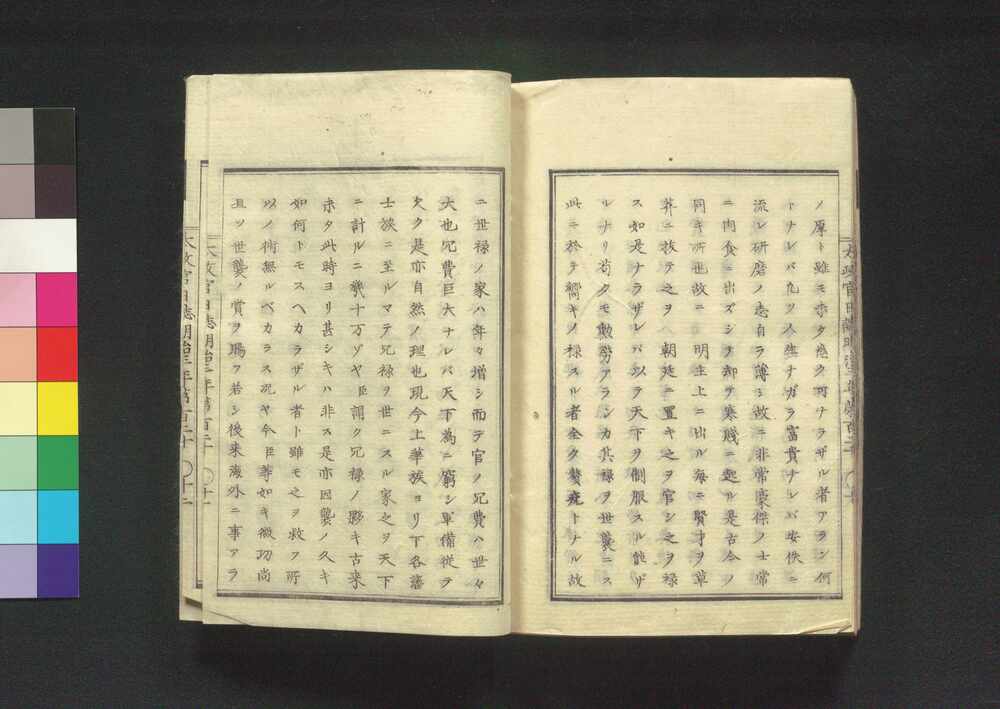 ノ厚ト雖モ亦タ惑ク可ナラザル者アラン何
トナレバ凡ソ人生ナガラ富貴ナレバ安佚ニ
流レ研磨ノ志自ラ薄シ故ニ非常豪傑ノ士常
ニ肉食ニ出ズシテ却テ寒賤ニ起ル是古今ノ
同キ所也故ニ 明主上ニ出ル毎ニ賢才ヲ草
莽ニ抜テ之ヲ 朝廷ニ置キ之ヲ官シ之ヲ禄
ス如是ナラザレバ以テ天下ヲ制服スル能ザ
ルナリ苟クモ勲労アランカ其禄ヲ世襲ニス
此ニ於テ嚮キノ禄スル者全ク贅疣トナル故
ニ世禄ノ家ハ年々増シ而テ官ノ冗費ハ世々
大也冗費巨大ナレバ天下為ニ窮シ軍備従テ
欠ク是亦自然ノ理也現今上華族ヨリ下各藩
士族ニ至ルマテ冗禄ヲ世ニスル家之ヲ天下
ニ計ルニ幾十万ゾヤ臣謂ク冗禄ノ夥キ古来
未タ此時ヨリ甚シキハ非ス是亦因襲ノ久キ
如何トモスヘカラザル者ト雖モ之ヲ救フ所
以ノ術無ルベカラス况ヤ今臣等如キ微功尚
且ツ世襲ノ賞ヲ賜フ若シ後来海外ニ事アラ
太政官日誌明治三年第百二十 〇十一
太政官日誌明治三年第百二十 〇十二